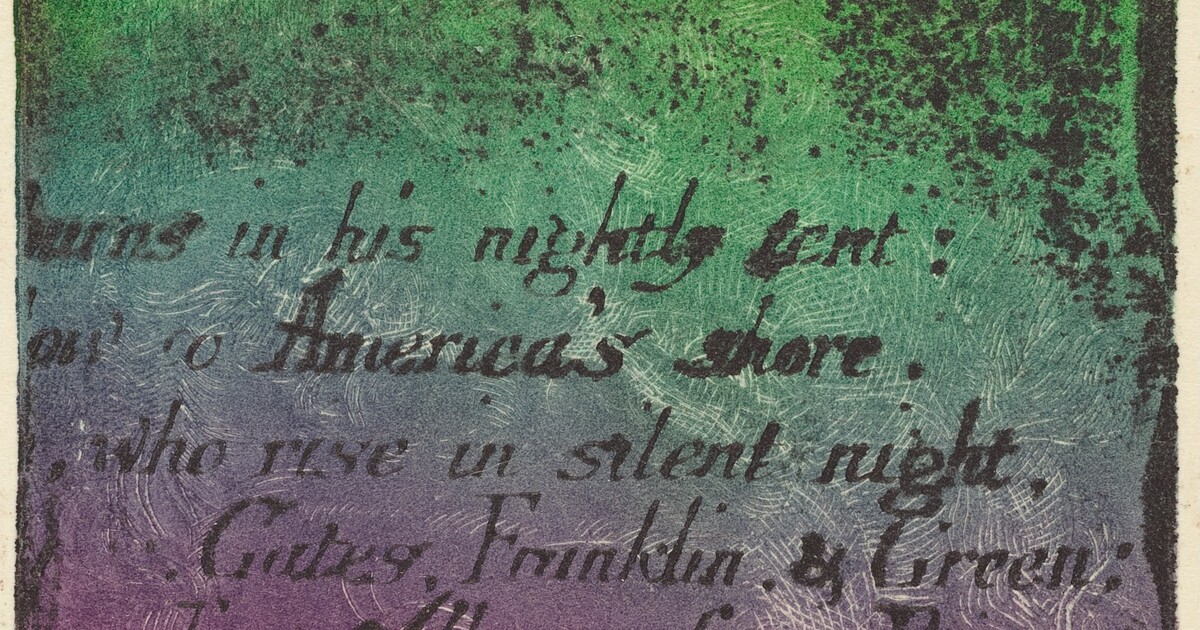 burns in his nightly tent:
America's shore.
, who rise in silent night,
Gates, Franklin, & Green;